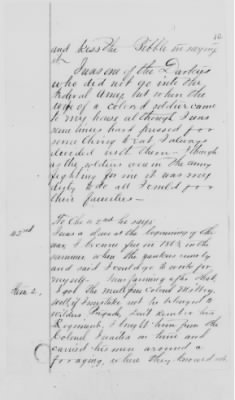 and kiss the Bible in saying
it.
I was one of the Darkeys
who did not go into the
Federal Army but when the
wife of a colored soldier came
to my house although I was
sometimes hard pressed for
something to eat I always
divided with them - I thought
as the soldiers were in the army
fighting for me it was my
duty to do all I could for
their families -
To the 2nd he says:
I was a slave at the beginning of the
war. I became free in 1863 in the
summer when the yankees came by
and said I could go to work for
myself. I was farming after that.
I got the mule from Colonel
if I mistake not he belonged to
Wilders Brigade, Don't know
Regiment, I bought him from the
Colonel on time and
carried his men around a
foraging, where they